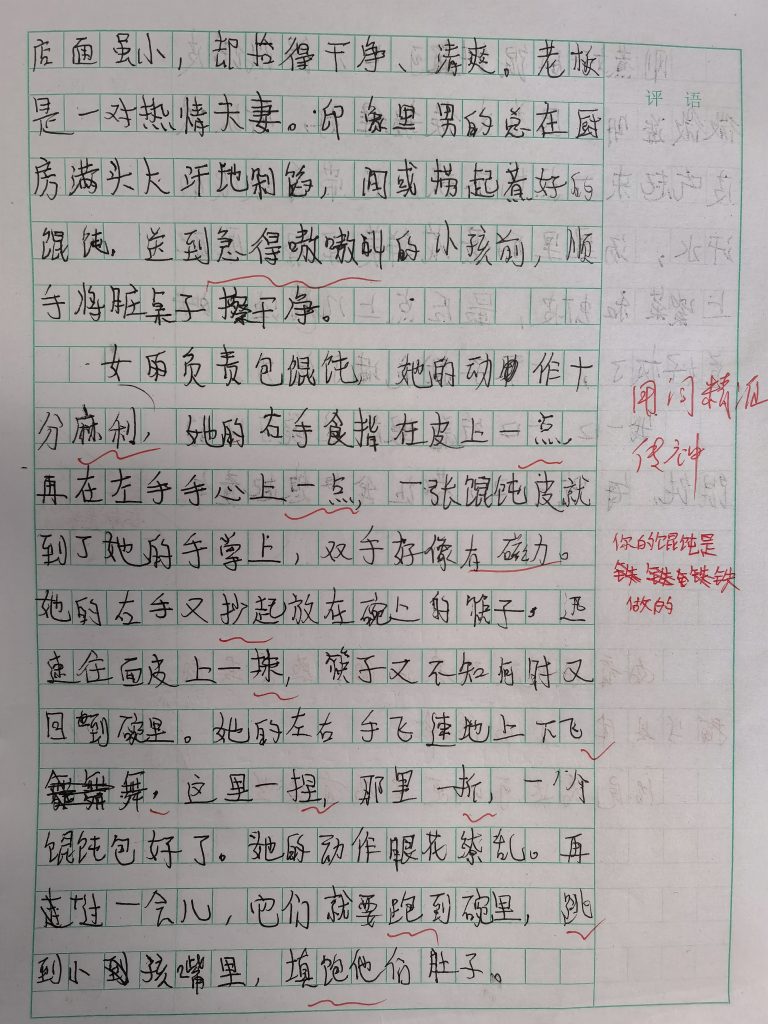 店面虽小，却拾得干净、清爽。老板
评语
是一对热情夫妻。印象里男的总在厨
房满头大汗地制馅，间或捞起煮好的
馄饨，送到急得嗷嗷叫的小孩前，顺
手将脏桌子擦干净。
女的负责包馄饨，她的动作十
分麻利，她的右手食指在皮上一点，
用词精准
传神
再在左手手心上一点，一张馄饨皮就
到了她的手掌上，双手好像有磁力。
你的馄饨是
铁做的
她的右手又抄起放在碗上的筷子，迅
速往面皮上一抹，筷子又不知何时又
回到碗里。她的左右手飞速地上下飞
舞，这里一捏，那里一折，一个
馄饨包好了。她的动作眼花缭乱。再
过一会儿，它们就要跑到碗里，跳
到小孩嘴里，填饱他们肚子。